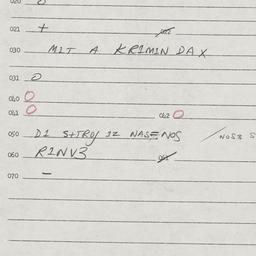 020 O
021 +
030 MIT A KRIMINDAX
031 O
040 O
041 O 042 O
050 DI S+TROJ IZ NASENOS / NOSE S
060 RINV3
070 -